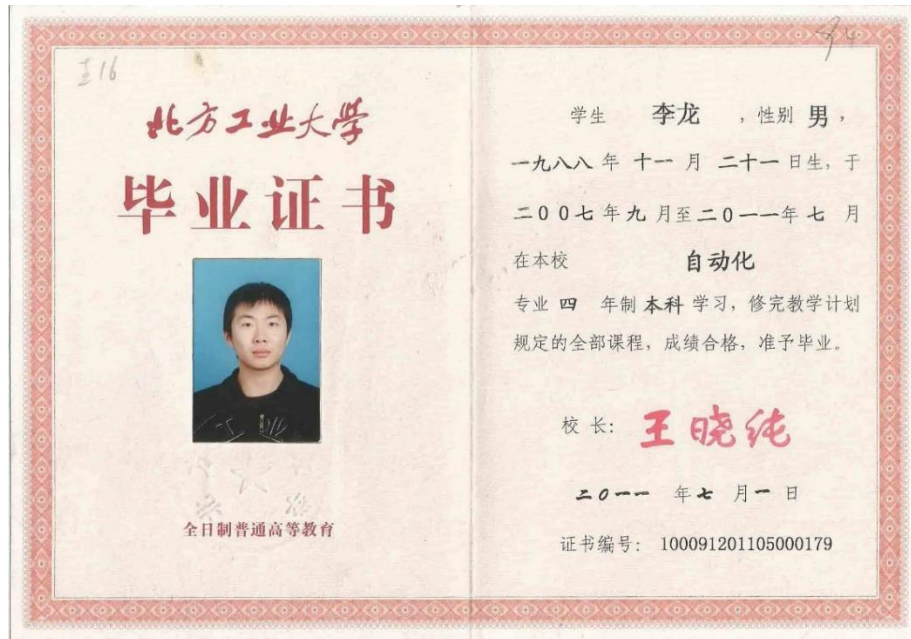 北方工业大学
毕业证书
全日制普通高等教育
学生 李龙 ，性别 男，
一九八八 年 十一 月 二十一 日生，于
二00七 年 九 月至 二0一一年 七 月
在本校 自动化
专业 四 年制 本科 学习，修完教学计划
规定的全部课程，成绩合格，准予毕业。
校 长： 王晓纯
二0一一 年 七 月 一 日
证书编号： 100091201105000179